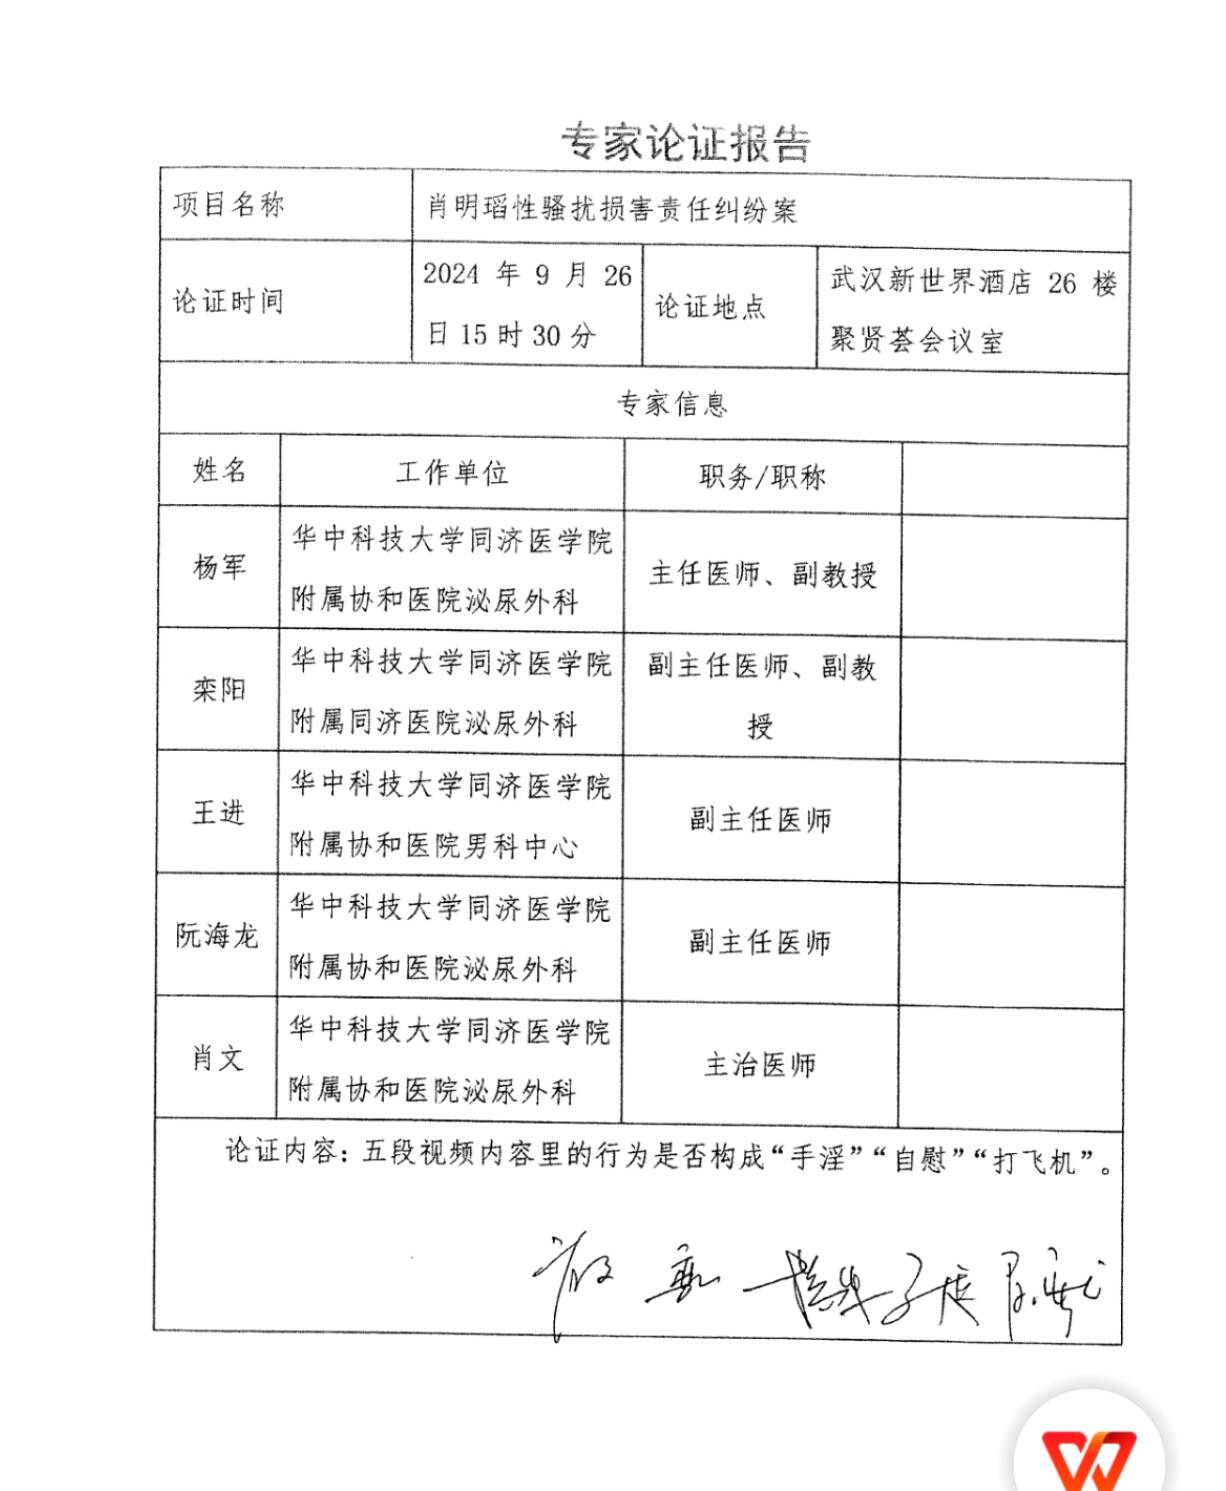 专家论证报告
项目名称
肖明瑫性骚扰损害责任纠纷案
论证时间
2024 年 9 月 26
日 15 时 30 分
论证地点
武汉新世界酒店 26 楼
聚贤荟会议室
专家信息
姓名
工作单位
职务/职称
杨军
华中科技大学同济医学院
附属协和医院泌尿外科
主任医师、副教授
栾阳
华中科技大学同济医学院
附属同济医院泌尿外科
副主任医师、副教
授
王进
华中科技大学同济医学院
附属协和医院男科中心
副主任医师
阮海龙
华中科技大学同济医学院
附属协和医院泌尿外科
副主任医师
肖文
华中科技大学同济医学院
附属协和医院泌尿外科
主治医师
论证内容：五段视频内容里的行为是否构成“手淫”“自慰”“打飞机”。